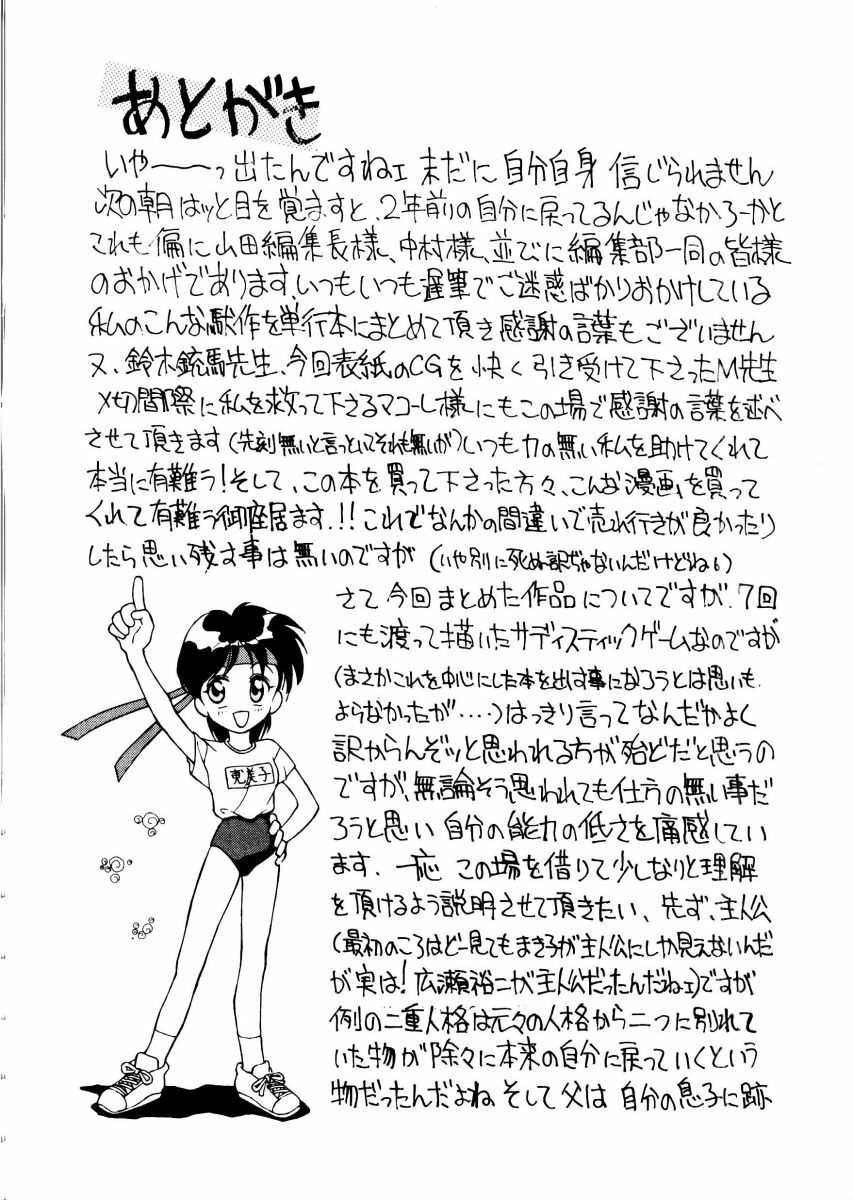 あとがき
いやーーっ出たんですねェ 未だに 自分自身 信じられません
次の朝 はッと目を覚ますと、2年前の自分に戻ってるんじゃなかろーかと
これも偏に山田編集長様、中村様、並びに編集部一同の皆様
のおかげであります、いつもいつも遅筆でご迷惑ばかりおかけしている
私のこんな駄作を単行本にまとめて頂き感謝の言葉もございません
又、鈴木銃馬先生、今回表紙のCGを快く引き受けて下さったM先生
〆切間際に私を救って下さるマコーレ様にもこの場で感謝の言葉を述べ
させて頂きます(先刻無いと言っといてそれも無いが)いつも力の無い私を助けてくれて
本当に有難う!そして、この本を買って下さった方々、こんな漫画を買って
くれて有難う御座居ます.!!これでなんかの間違いで売れ行きが良かったり
したら思い残す事は無いのですが (いや別に死ぬ訳ぢゃないんだけどね。)
さて今回まとめた作品についてですが、7回
にも渡って描いたサディスティックゲームなのですが
(まさかこれを中心にした本を出す事になろうとは思いも
よらなかったが・・・・)はっきり言ってなんだかよく
訳からんぞッと思われる方が殆どだと思うの
ですが、無論そう思われても仕方の無い事だ
ろうと思い 自分の能力の低さを痛感してい
ます、一応 この場を借りて少しなりと理解
を頂けるよう説明させて頂きたい、先ず、主人公
(最初のころはどー見てもまき子が主人公にしか見えないんだ
が実は!広瀬裕二が主人公だったんだねェ)ですが
例の二重人格は元々の人格から二つに別れて
いた物が除々に本来の自分に戻っていくという
物だったんだよね そして父は 自分の息子に跡
恵美子